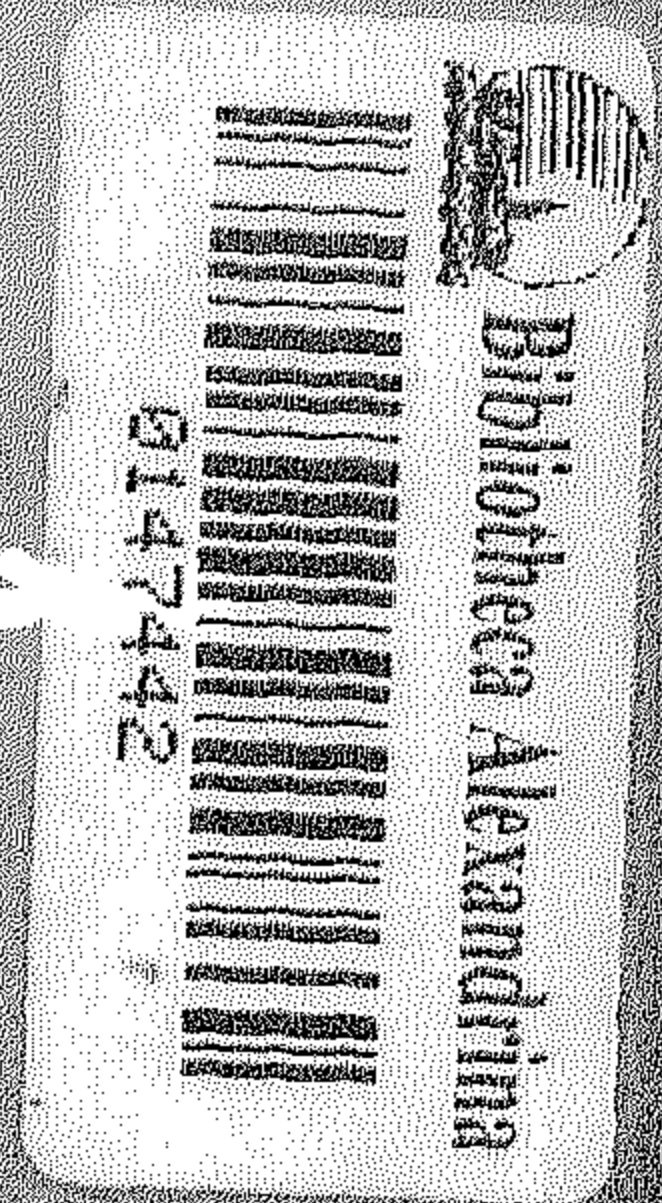 Bibliotheca Alexandrina
0147442